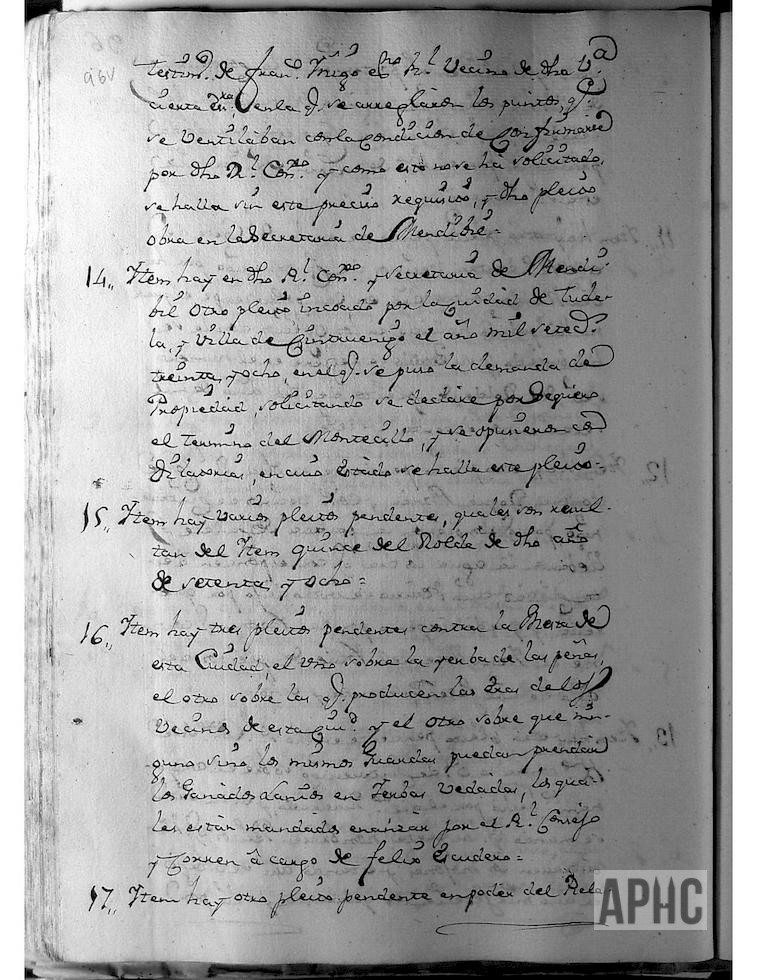 96v
testim.º de Fran.co Trigo esno R.l Vecino de dha V.a
cuenta en la q.e se arreglaron los puntos, q.e
se ventilaban con la condicion de Confirmarse
por dho R.l Con.º y como esto no se há solicitado,
se halla sin este preciso requisito, y dho pleito
obra en la Secretaria de Mendibil =
14,, Item hay en dho R.l Con.º y Secretaria de Mendi-
bil otro pleito incoado por la Ciudad de Tude-
la, y Villa de Cintruenigo el año mil seted.s
treinta, y ocho, en el q.e se puso la demanda de
Propiedad, solicitando se declare por
el termino del Montecillo, y se opusieron con
Dilatorias, en cuio Estado se halla este pleito =
15,, Item hay varios pleitos pendentes, quales son resul-
tan del Item quince del Rolde de dho año
de setenta, y ocho =
16,, Item hay tres pleitos pendentes contra la Mesta de
esta Ciudad, el Uno sobre la yerba de las peñas,
el otro sobre las q.e producen las Eras de los
Vecinos de esta Ciu.d y el otro sobre que nin-
guno sino los mismos Guardas puedan prendar
los Ganados Lanios en Yerbas Vedadas, los qua-
les están mandados enanzar por el R.l Consejo
y Corren â cargo de Felix Escudero =
17,, Item hay otro pleito pendente en poder del Rela-
APHC